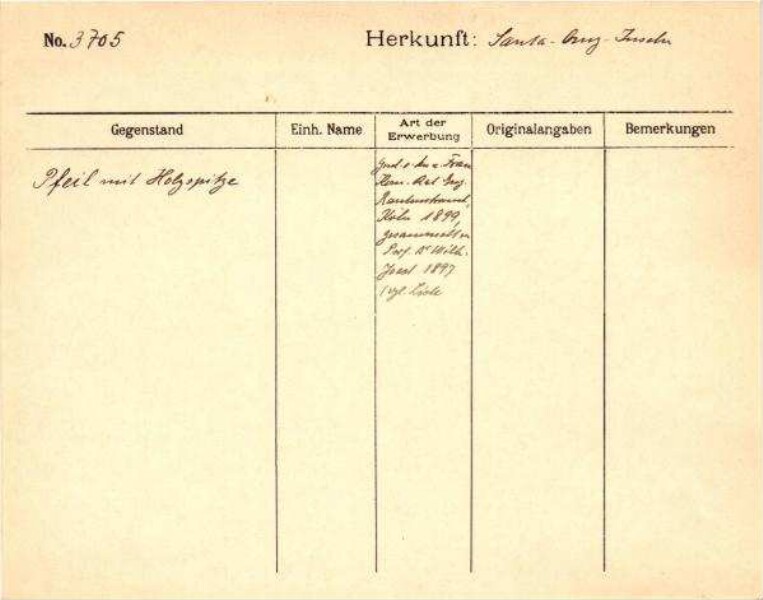 No. 3705
Herkunft: Santa-Cruz-Inseln
Gegenstand
Einh. Name
Art der
Erwerbung
Originalangaben
Bemerkungen
Pfeil mit Holzspitze
Frau
Kom.-Rat Eug.
Rautenstrauch,
Köln 1899,
gesammelt v.
Prof. Dr Wilh.
Joest 1897
(vgl. Liste